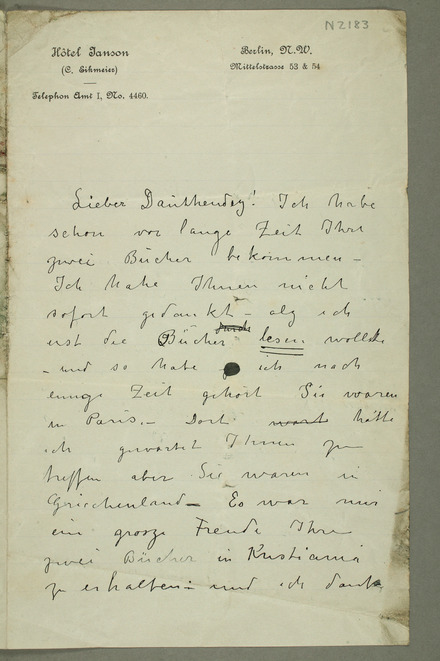 N2183
Hôtel Janson
(C. Eihmeier)
Telephon Amt I, No. 4460.
Berlin, N.W.
Mittelstrasse 53 & 54
Lieber Dauthendey! Ich habe
schon vor lange Zeit Ihre
zwei Bücher bekommen –
Ich habe Ihnen nicht
sofort gedankt – alz ich
erst die Bücher lesen wollte
– und so habe ich nach
einige Zeit gehört Sie waren
in Paris. – Dort hätte
ich gewartet Ihnen zu
treffen aber Sie waren in
Griechenland – Es war mir
ein grosze Freude Ihre
zwei Bücher in Kristiania
zu erhalten – und ich danke